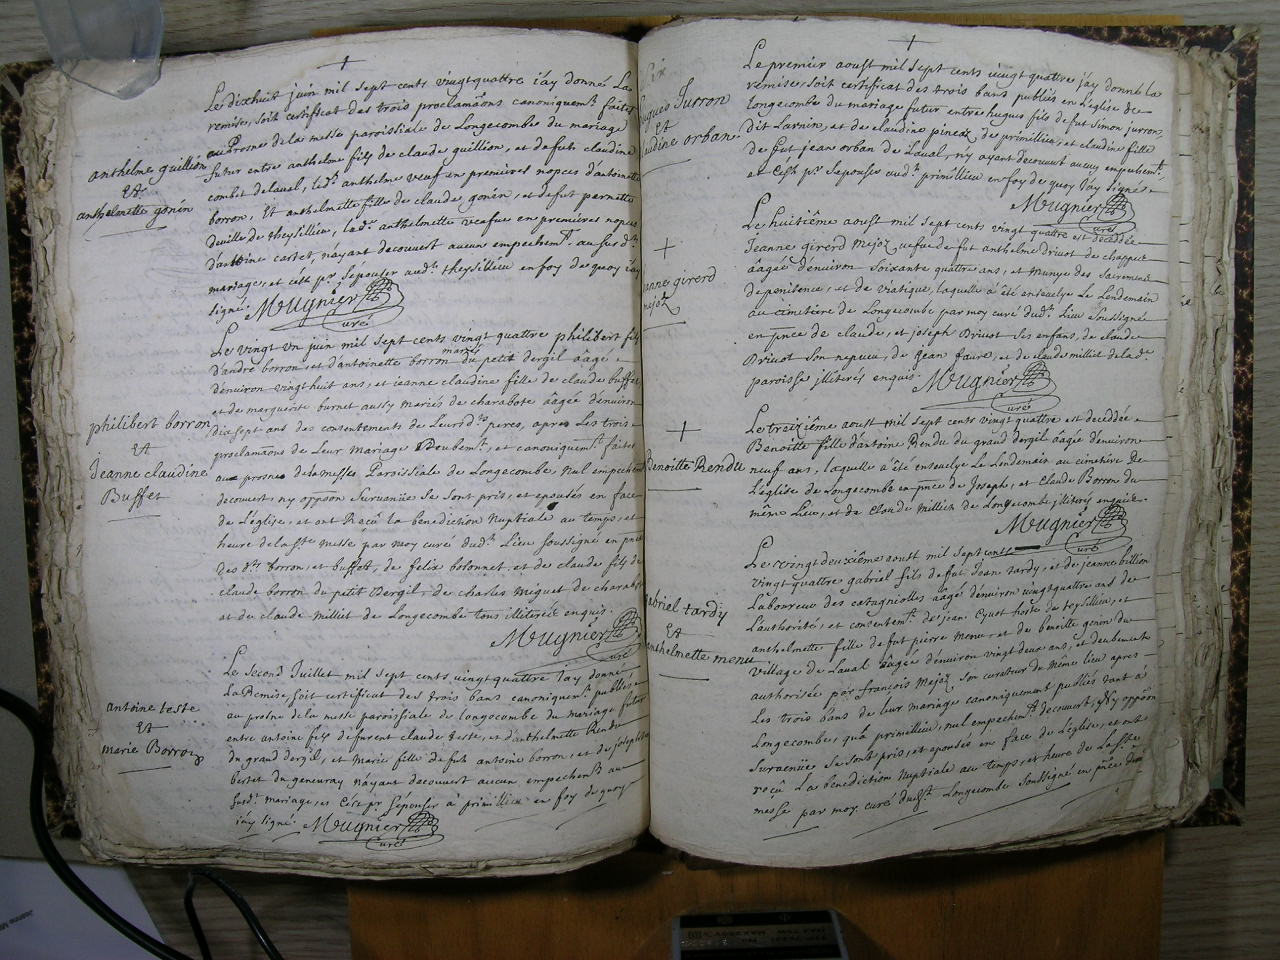 Le dixhuit juin mil sept cents vingt quattre i'ay donné La
remise, soit certificat des trois proclamaõns canoniquemt faites
au Prosne de la messe paroissiale de Longecombe du mariage
anthelme guillion
Et
anthelmette gonin
futur entre anthelme fils de claude guillion, et de futte claudine
combet de laval, led. anthelme veuf en premieres nopces d'antoinette
borron, Et anthelmette fille de claude gonin, et de fut pernette
Deville de theysillieu, lad. anthelmette veufue en premieres nopces
d'antoine cartet, n'ayant decouvert aucun empechemt. au susdt.
mariage, et c'est pr. sepouser audt. theysillieu en foy de quoy i'ay
signé. Mugnier
curé
Le vingt un juin mil sept cents vingt quattre philibert fils
d'andré borron, et d'antoinette borron mariés du petit dergil âagé
d'environ vingt huit ans, et ieanne claudine fille de claude buffet
et de marguerite burnet aussy mariés de charabote âagée d'environ
philibert borron
Et
Jeanne claudine
Buffet
dixsept ans des consentements de Leursdts peres, apres Les trois
proclamaõns de Leur mariage Deubemt, et canoniquemt. faites
aux prosnes de la messe Paroissiale de Longecombe nul empechemt
decouvert, ny oppõon Survenüe se sont pris, et epousés en face
de L'église, et ont Reçû la benediction Nuptiale au temps, et
heure de la ste messe par moy curé dudt. Lieu soussigné en pnce
des dts borron, et buffet, de felix bolonnet, et de claude fils de
claude borron du petit Dergil, de charles miguet de charabote
et de claude milliet de Longecombe tous illiterés enquis.
Mugnier
curé
antoine teste
Et
marie Borron
Le second Juillet mil sept cents vingt quattre i'ay donné
La Remise, soit certificat des trois bans canoniquemt. publiés
au prosne de la messe paroissiale de longecombe du mariage futur
entre antoine fils de furent claude teste, et d'anthelmette Rendu
du grand dergil, et Marie fille de fut antoine borron, et de josephte
bertet du genevray n'ayant decouvert aucun empechemt au
susdt. mariage, et c'est pr s'épouser à primillieu en foy de quoy
i'ay signé. Mugnier
curé
Le premier aoust mil sept cents vingt quattre j'ay donné la
remise, soit certificat des trois bans publiés en l'eglise de
Longecombe du mariage futur entre hugues fils de fut simon jurron
dit Larnin, et de claudine pincaz de primillieu, et claudine fille
Jurron
Et
claudine orban
de fut jean orban de Laval, n'y ayant decouvert aucun empechemt.
et c'est pr. s'epouser audt. primillieu en foy de quoy i'ay signé.
Mugnier
curé
Le huitiême aoust mil sept cent vingt quattre est deceddée
Jeanne girerd mejoz veufue de fut anthelme Drivot de chappue
âagée d'environ soixante quattre ans, et munye des sacrements
jeanne girerd
mejoz
de penitence, et de viatique, laquelle a été ensevelye Le Lendemain
au cimetiére de Longecombe par moy curé dudt. Lieu soussigné
en pnce de claude, et joseph Drivot ses enfans, de claude
Drivot son nepveu, de jean favre, et de claude milliet de lade.
paroisse illiterés enquis. Mugnier
curé
Le treiziême aoust mil sept cents vingt quattre est deceddée
Benoitte fille d'antoine Rendu du grand dergil âagée d'environ
Benoitte Rendu
neuf ans, laquelle a été ensevelye Le Lendemain au cimetiére de
L'église de Longecombe en pnce de Joseph, et claude Borron du
même Lieu, et de Claude Millieh de Longecombe illiterés enquis.
Mugnier
curé
Le vingt deuxiême aoust mil sept cents
vingt quattre gabriel fils de fut Jean tardy, et de jeanne billion
gabriel tardy
Et
anthelmette menu
Laboureur des catagnolles âagé d'environ vingt quattre ans de
L'authorité, et consentemt. de jean Cyvot hoste de teysillieu, et
anthelmette fille de fut pierre menu, et de benoitte genin du
village de Laval âagée d'environ vingt deux ans, et deubement
authorisée par françois Mejoz son curateur du même lieu apres
Les trois bans de leur mariage canoniquement publiés tant à
Longecombe, qu'à primillieu, nul empechemt decouvert, Ny oppõon
survenüe se sont pris, et epousés en face de L'église, et ont
reçû La benediction Nuptiale au temps, et heure de La ste
messe par moy curé dudt. Longecombe soussigné en pnce dud